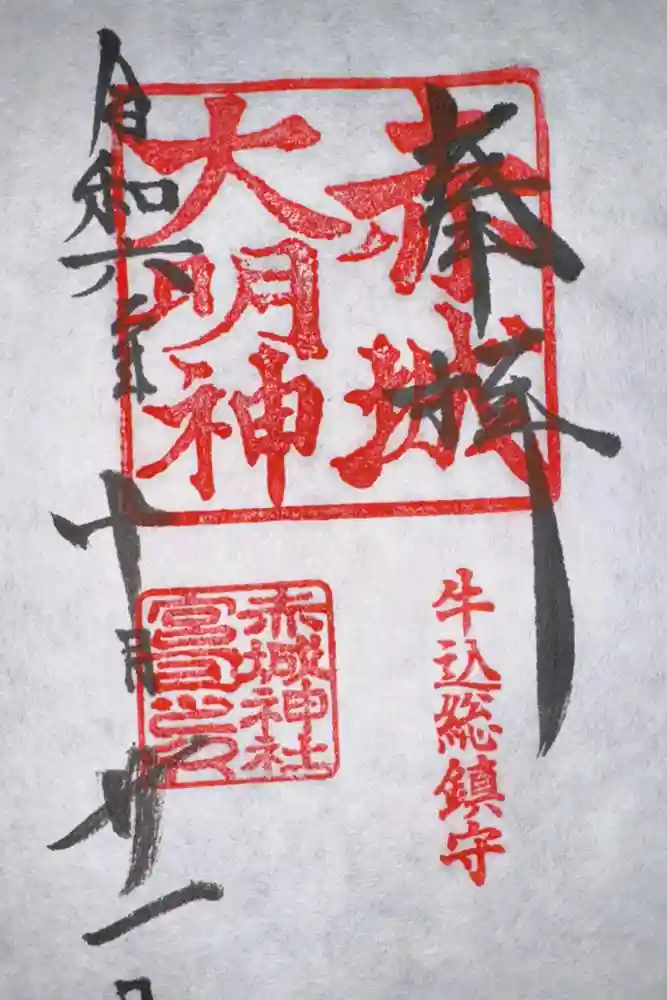 奉拝
赤城
大明神
牛込総鎮守
赤城神社
宮司之印
令和六年十月廿一日